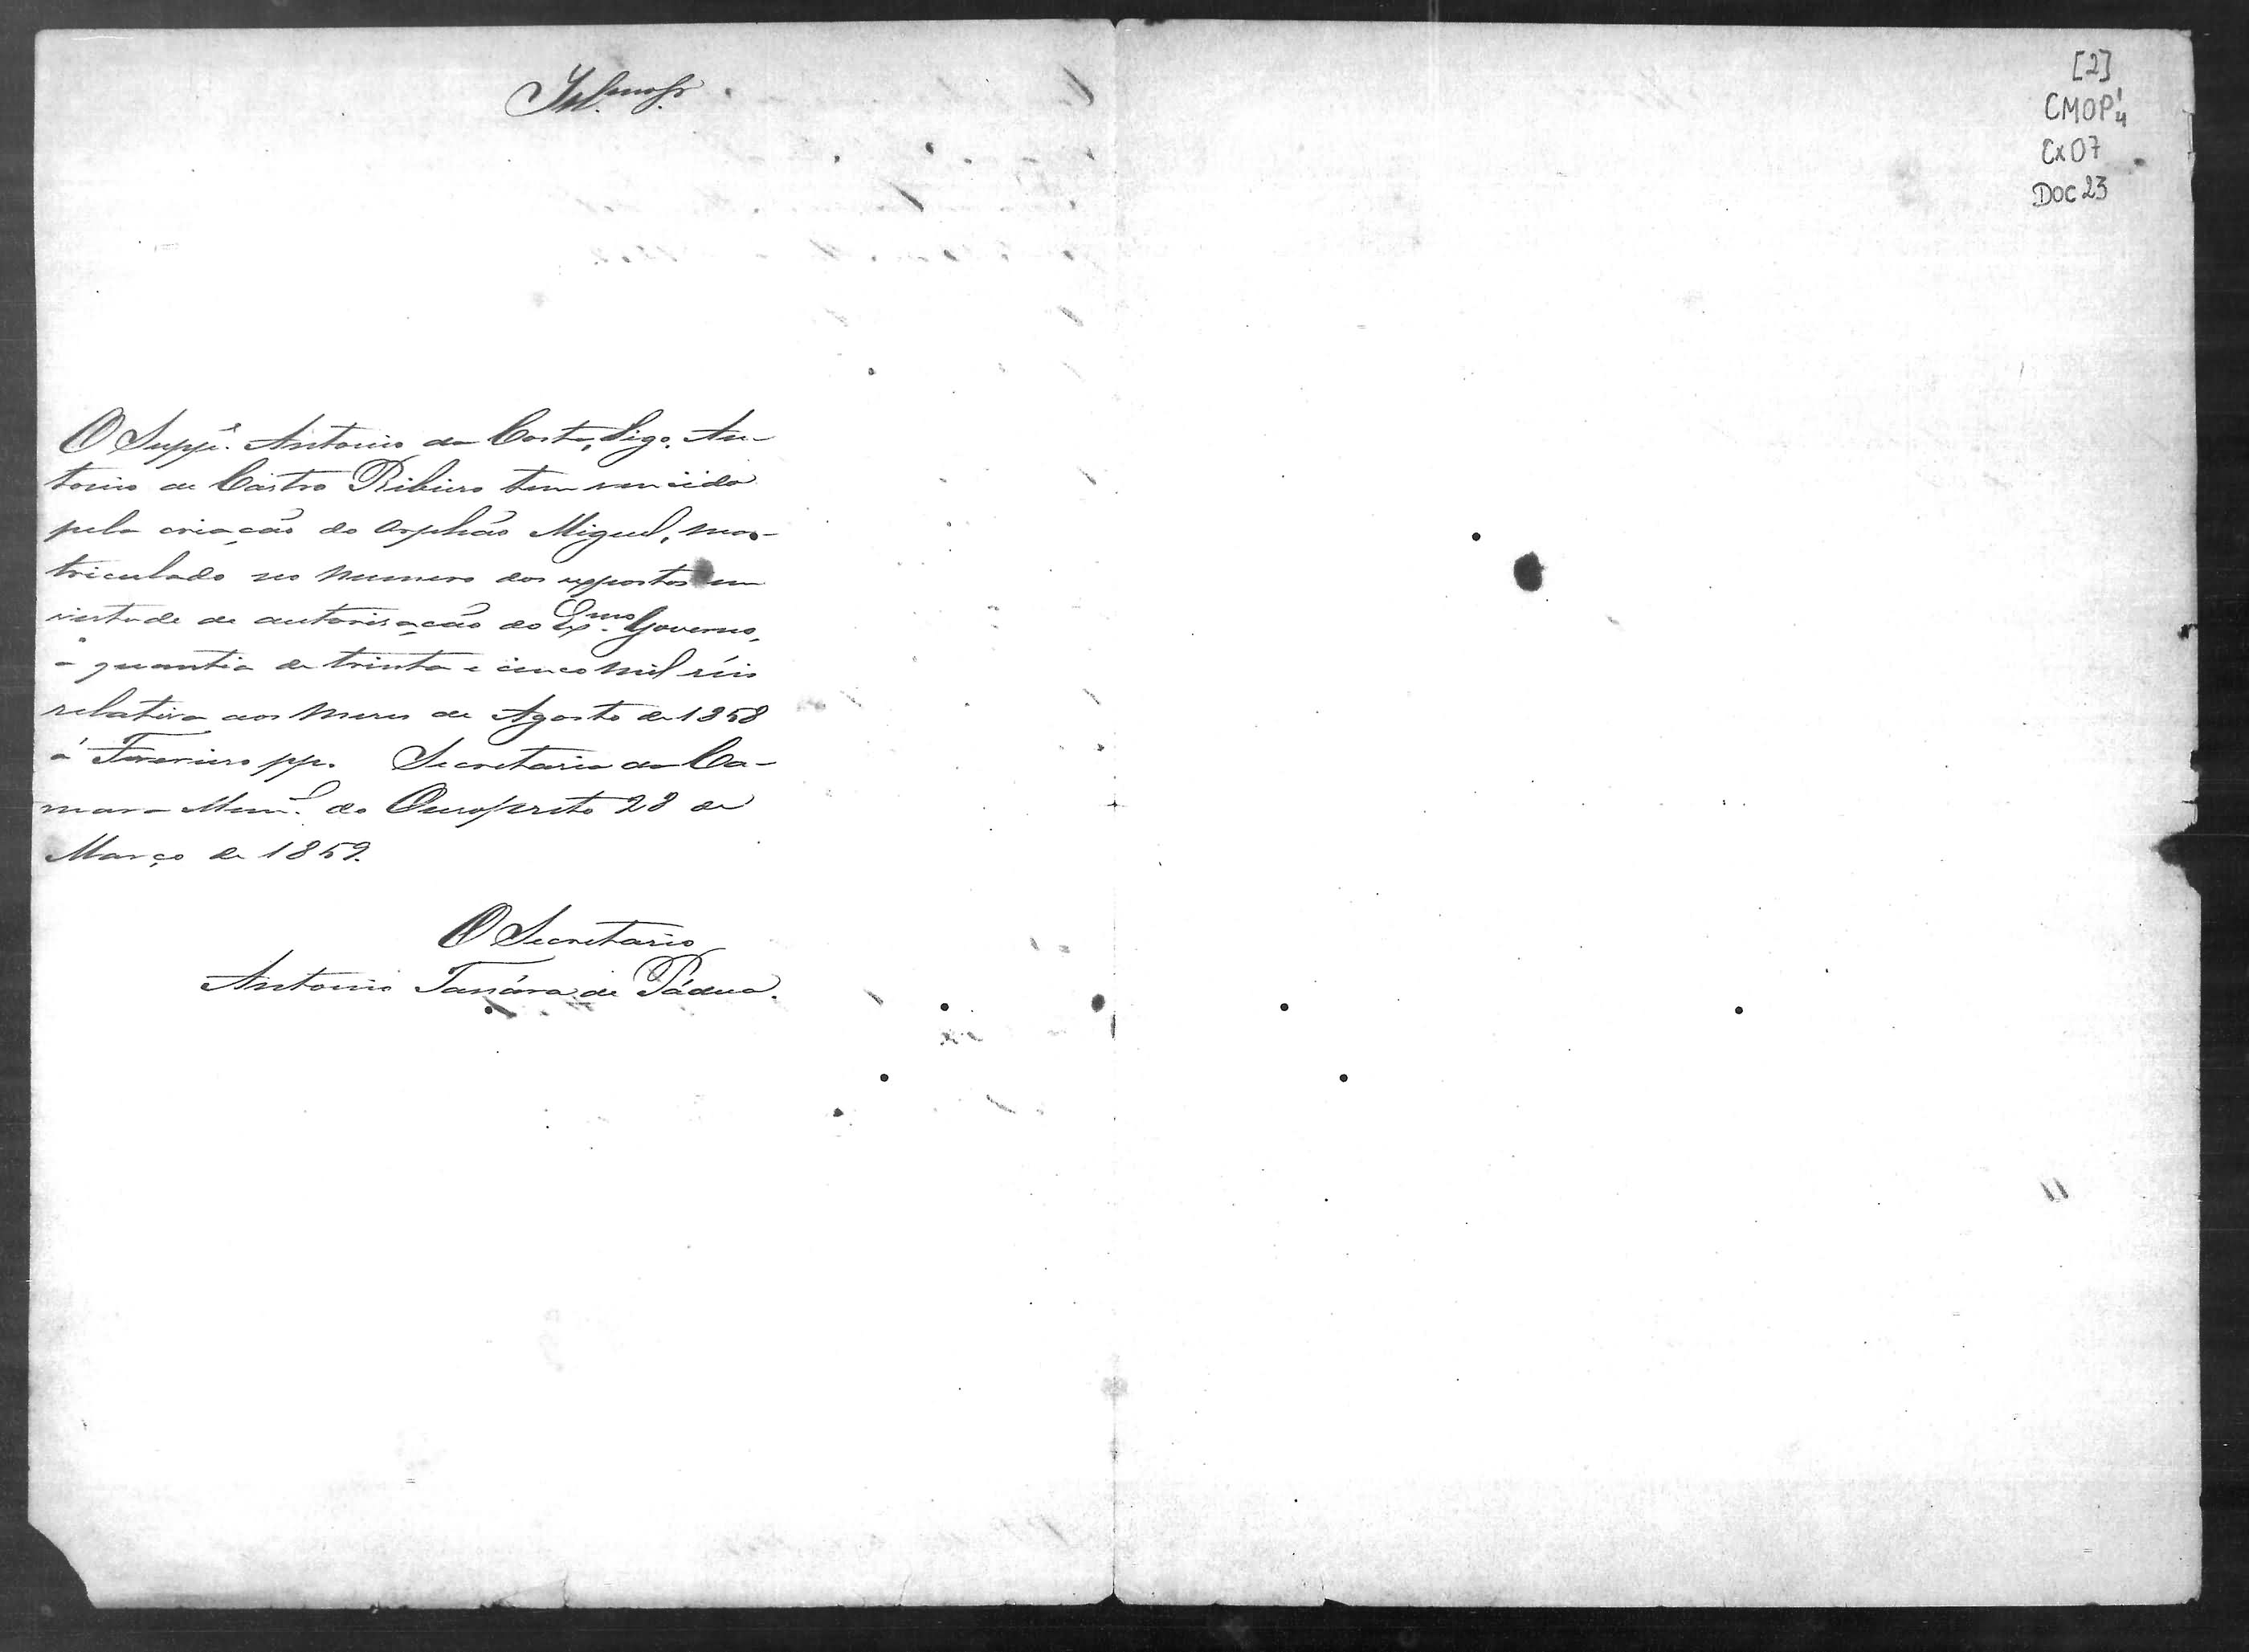 Illmo Sr.
[2]
CMOP 1/4
Cx 07
DOC 23
O Suppe. Antonio da Costa, digo, An-
tonio de Castro Ribeiro tem vencido
pela criação do Orphão Miguel, ma-
triculado no numero dos expostos em
virtude de autorisação do Exmo. Governo,
a quantia de trinta e cinco mil réis
relativa aos meses de Agosto de 1858
á Fevereiro pp. Secretaria da Ca-
mara Munl. do Ouropreto 28 de
Março de 1859.
O Secretario
Antonio de Pádua.